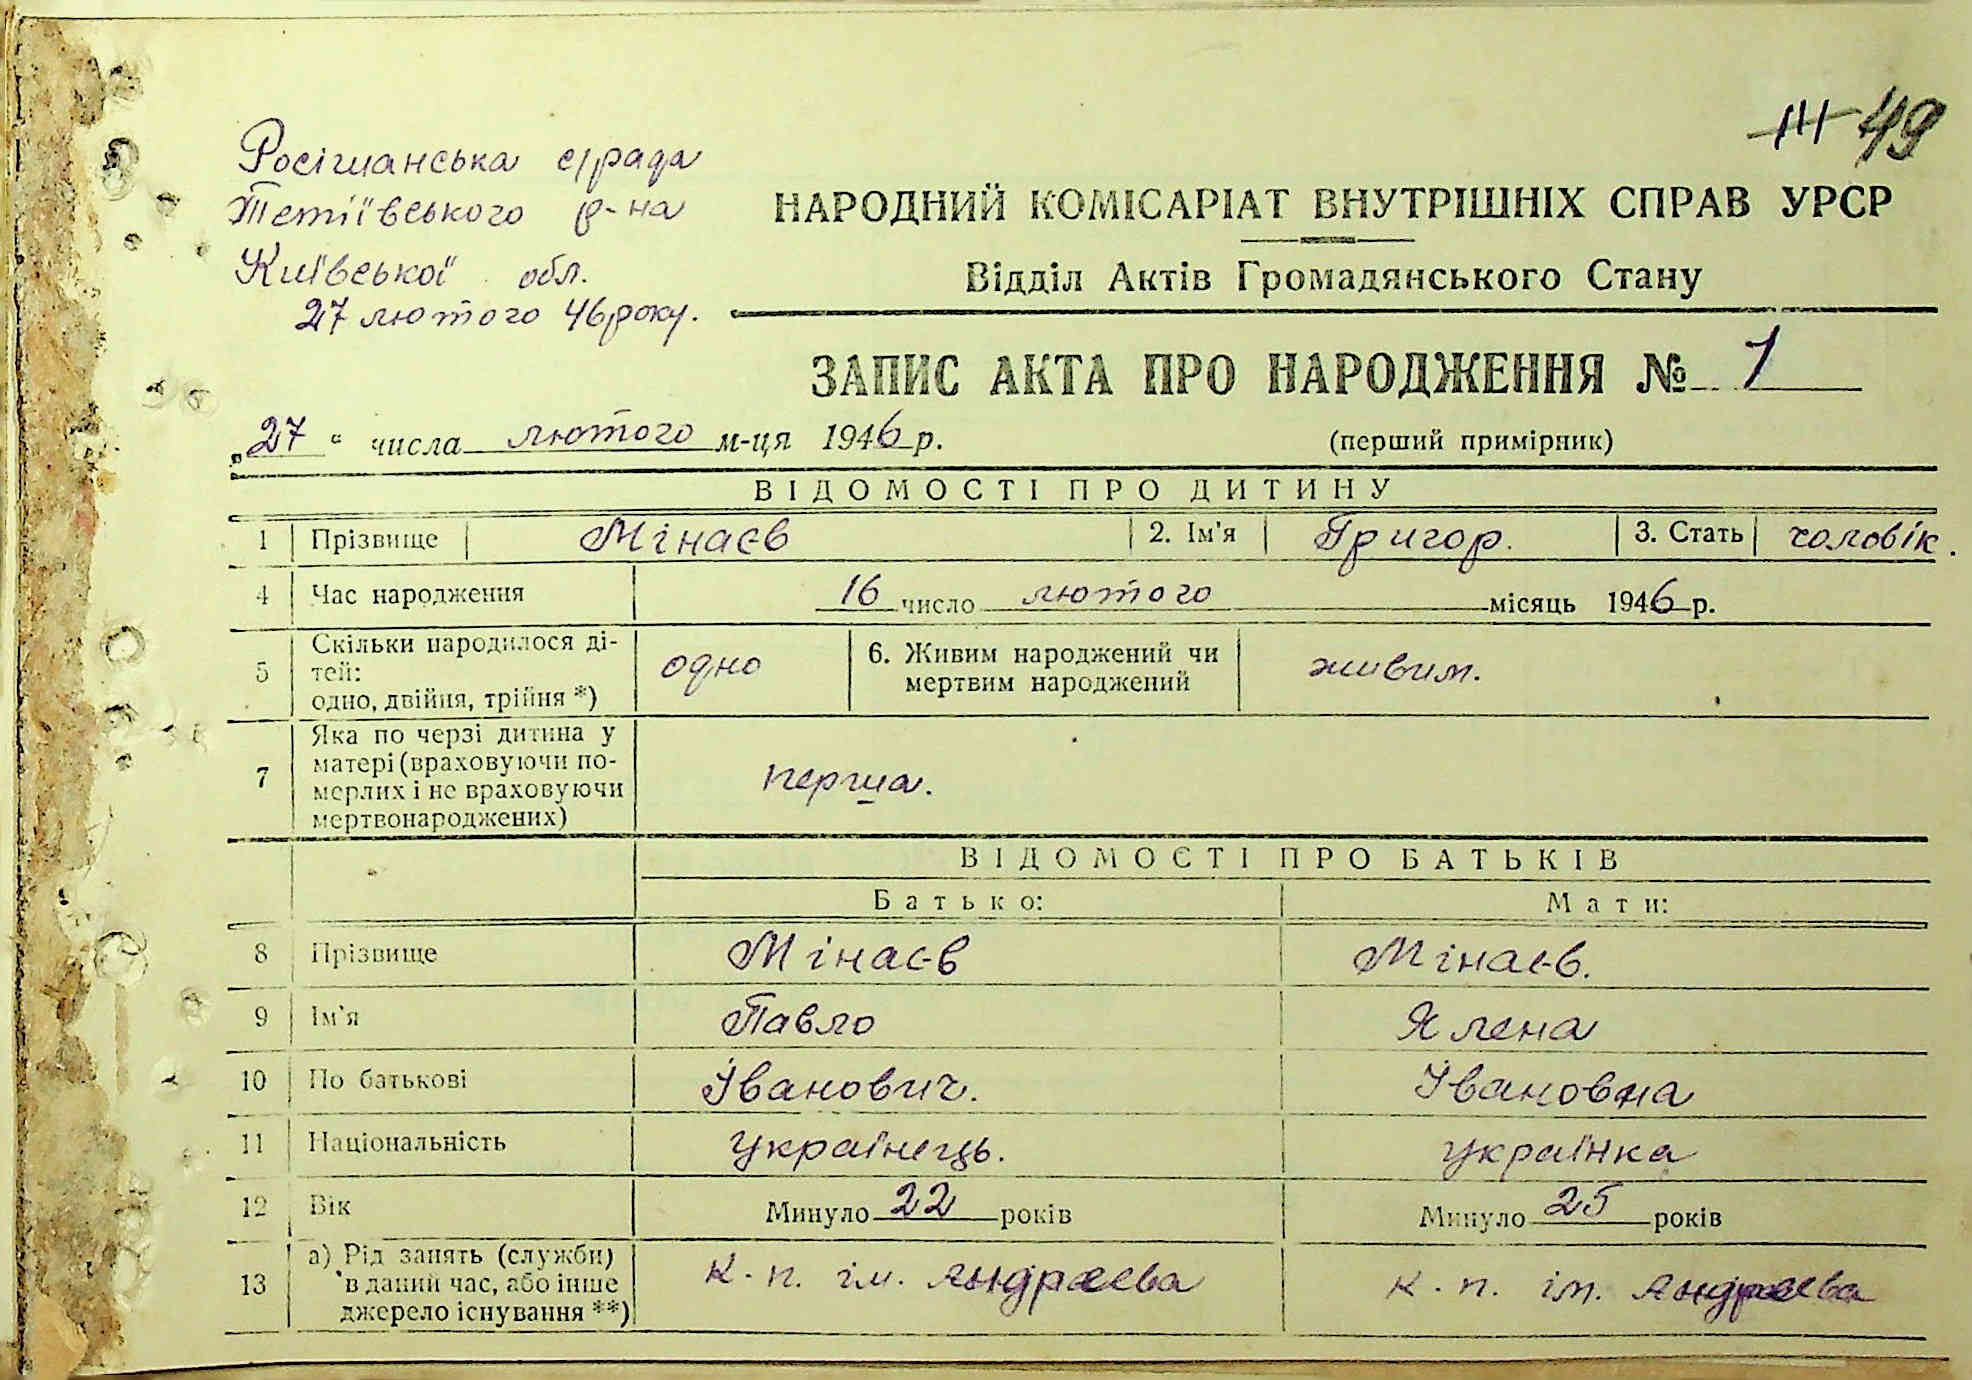 49
Росішанська с/рада
Тетіївського р-на
Київської обл.
27 лютого 46 року.
НАРОДНИЙ КОМІСАРІАТ ВНУТРІШНІХ СПРАВ УРСР
Відділ Актів Громадянського Стану
ЗАПИС АКТА ПРО НАРОДЖЕННЯ № 1
„27“ числа лютого м-ця 1946 р. (перший примірник)
ВІДОМОСТІ ПРО ДИТИНУ
1 Прізвище Мінаєв 2. Ім'я Григор. 3. Стать чоловік.
4 Час народження 16 число лютого місяць 1946 р.
5 Скільки народилося ді-
тей:
одно, двійня, трійня *) одно 6. Живим народжений чи
мертвим народжений живим.
7 Яка по черзі дитина у
матері (враховуючи по-
мерлих і не враховуючи
мертвонароджених) перша.
ВІДОМОСТІ ПРО БАТЬКІВ
Батько: Мати:
8 Прізвище Мінаєв Мінаєв.
9 Ім'я Павло Ялена
10 По батькові Іванович. Івановна
11 Національність українець. українка
12 Вік Минуло 22 років Минуло 25 років
13 а) Рід занять (служби)
в даний час, або інше
джерело існування **) к. п. ім. Андрєєва к. п. ім. Андрєєва